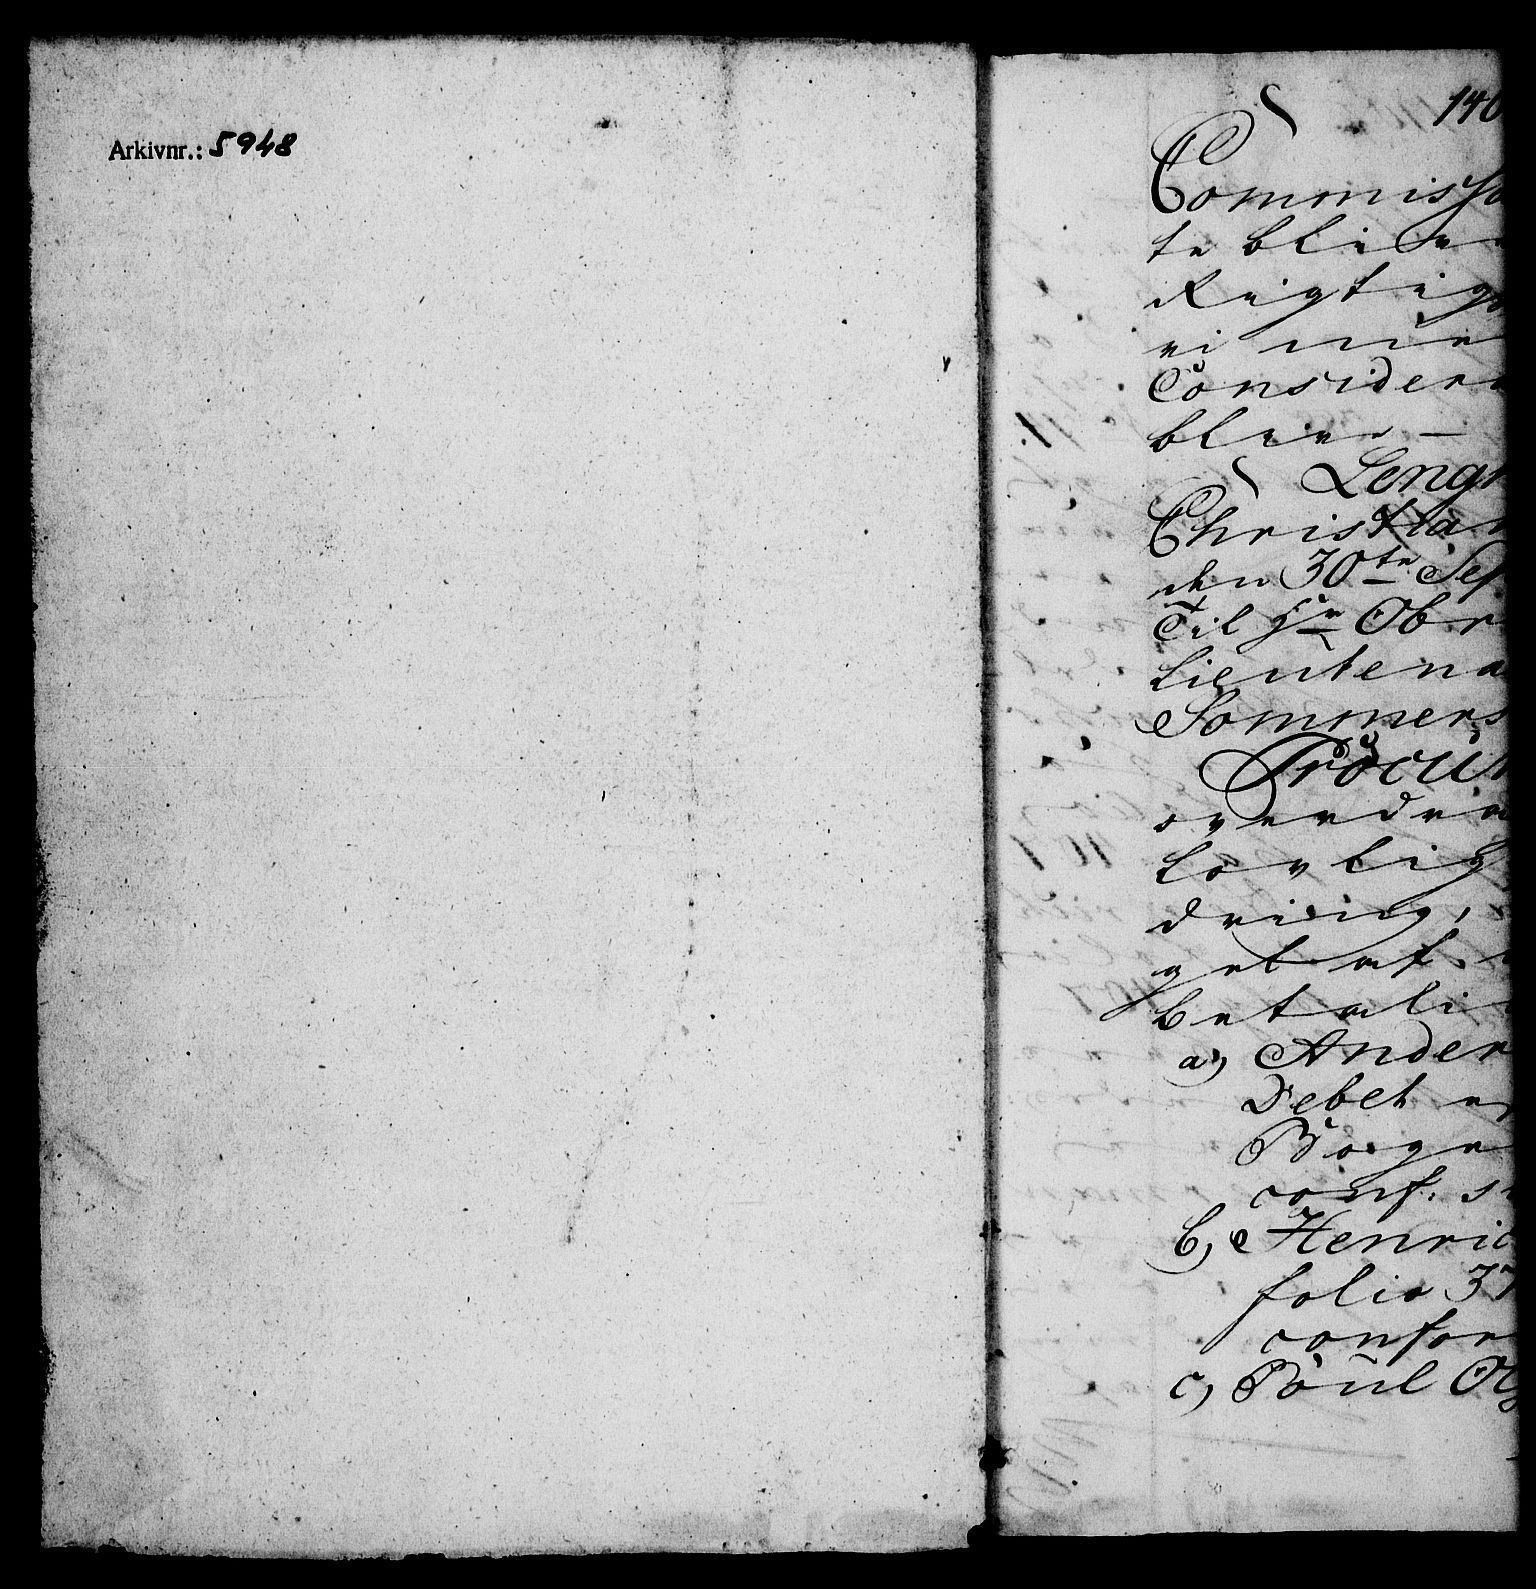 Arkivnr.: 5948
140
Commissa
te bliv
Rigtig
ei
Considera
blive —
Lengn
Christian
den 30te Sep
Til Hr Obr
Lieutena
Sommers
Procur
overdra
Lovlig
dring,
get af
betali
a) Ander
Debet
Boge
conf:
b) Henric
folio 37
confor
c) Poul Ol